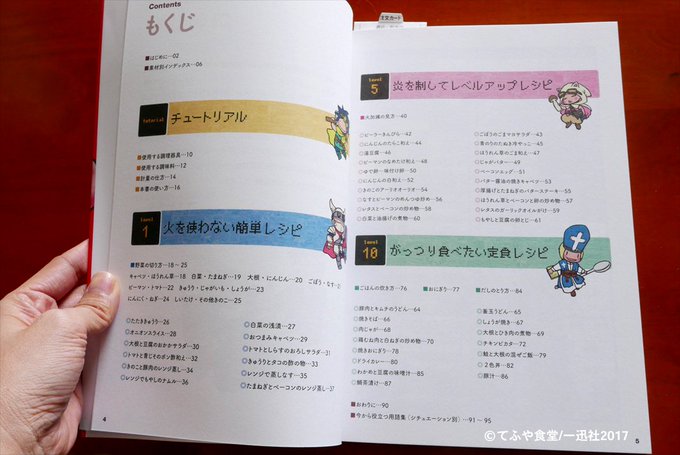 Contents
もくじ
■はじめに…02
■素材別インデックス…06
Tutorial
チュートリアル
■使用する調理器具…10
■使用する調味料…12
■計量の仕方…14
■本書の使い方…16
level
1
火を使わない簡単レシピ
■野菜の切り方…18～25
キャベツ・ほうれん草…18 白菜・たまねぎ…19 大根・にんじん…20 ごぼう・なす…21
ピーマン・トマト…22 きゅうり・じゃがいも・しょうが…23
にんにく・ねぎ…24 しいたけ・その他きのこ…25
◎たたききゅうり…26
◎オニオンスライス…28
◎大根と豆腐のおかかサラダ…30
◎トマトと青じそのポン酢和え…32
◎きのこと豚肉のレンジ蒸し…34
◎レンジでもやしのナムル…36
◎白菜の浅漬…27
◎おつまみキャベツ…29
◎トマトとしらすのおろしサラダ…31
◎きゅうりとタコの酢の物…33
◎レンジで蒸しなす…35
◎たまねぎとベーコンのレンジ蒸し…37
4
注文カード
level
5
炎を制してレベルアップレシピ
■火加減の見方…40
◎ピーラーきんぴら…42
◎にんじんのたらこ和え…44
◎湯豆腐…46
◎ピーマンのなめたけ和え…48
◎ゆで卵・味付け卵…50
◎にんじんの白和え…52
◎きのこのアーリオオーリオ…54
◎なすとピーマンのめんつゆ炒め…56
◎レタスとベーコンの炒め物…58
◎白菜と油揚げの煮物…60
◎ごぼうのごまマヨサラダ…43
◎青のりのたぬき冷やっこ…45
◎ほうれん草のごま和え…47
◎じゃがバター…49
◎ベーコンエッグ…51
◎バター醤油の焼きキャベツ…53
◎厚揚げとたまねぎのバターステーキ…55
◎ほうれん草とベーコンと卵の炒め物…57
◎レタスのガーリックオイルがけ…59
◎もやしと豆腐の卵とじ…61
level
10
がっつり食べたい定食レシピ
■ごはんの炊き方…76 ■おにぎり…77 ■だしのとり方…84
◎豚肉とキムチのうどん…64
◎焼きそば…66
◎肉じゃが…68
◎鶏むね肉と白ねぎの炒め物…70
◎焼きおにぎり…78
◎ドライカレー…80
◎わかめと豆腐の味噌汁…85
◎鯛茶漬け…87
◎釜玉うどん…65
◎しょうが焼き…67
◎大根とひき肉の煮物…69
◎チキンピカタ…72
◎鮭と大根の混ぜご飯…79
◎２色丼…82
◎豚汁…86
■おわりに…90
■今から役立つ用語集（シチュエーション別）…91～95
5
©てふや食堂/一迅社2017